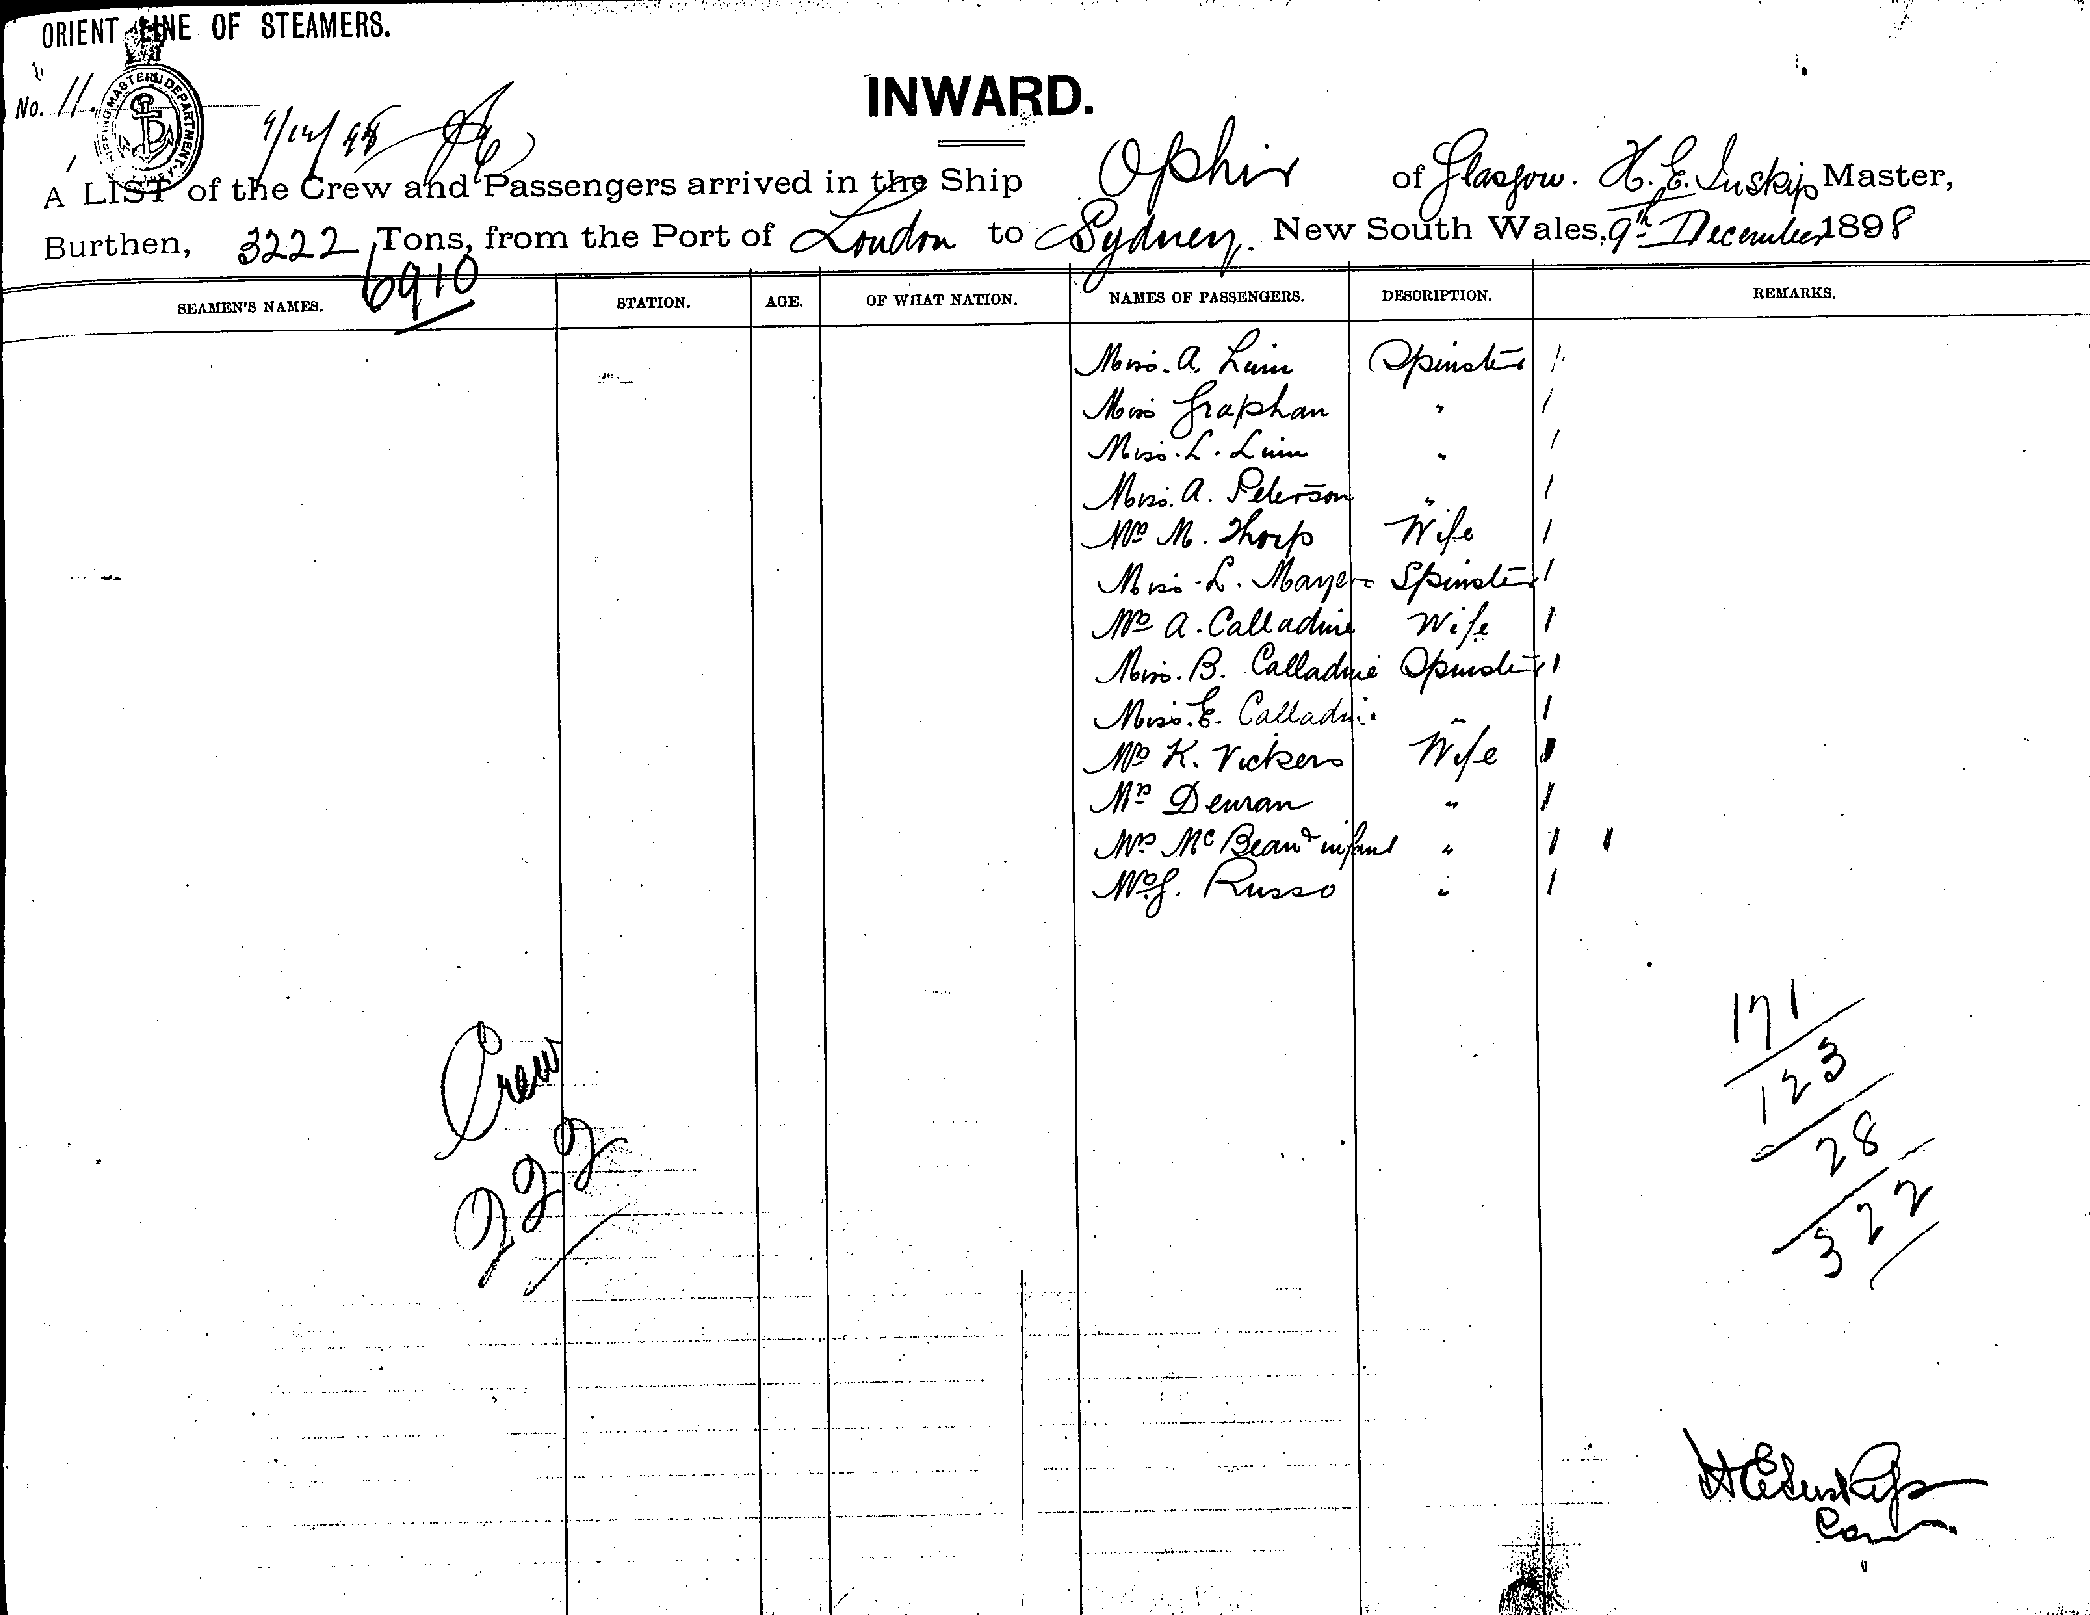 ORIENT LINE OF STEAMERS.
No. 11.
SHIPPING MASTER'S DEPARTMENT
9/12/98
INWARD.
A LIST of the Crew and Passengers arrived in the Ship Ophir of Glasgow. H. E. Inskip Master,
Burthen, 3222 Tons, from the Port of London to Sydney. New South Wales, 9th December 1898
6910
SEAMEN'S NAMES. STATION. AGE. OF WHAT NATION. NAMES OF PASSENGERS. DESCRIPTION. REMARKS.
Miss. A. Spinster /
Miss Graphan " /
Miss. L. " /
Miss. A. Peterson " /
Mrs M. Thorp Wife /
Miss. L. Mayer Spinster /
Mrs A. Calladine Wife /
Miss. B. Calladine Spinster /
Miss. E. Calladine " /
Mrs K. Vickers Wife /
Mrs Denran " /
Mrs McBean & infant " / /
Mrs J. Russo " /
Crew
222
171
123
28
322
H E Inskip
Com